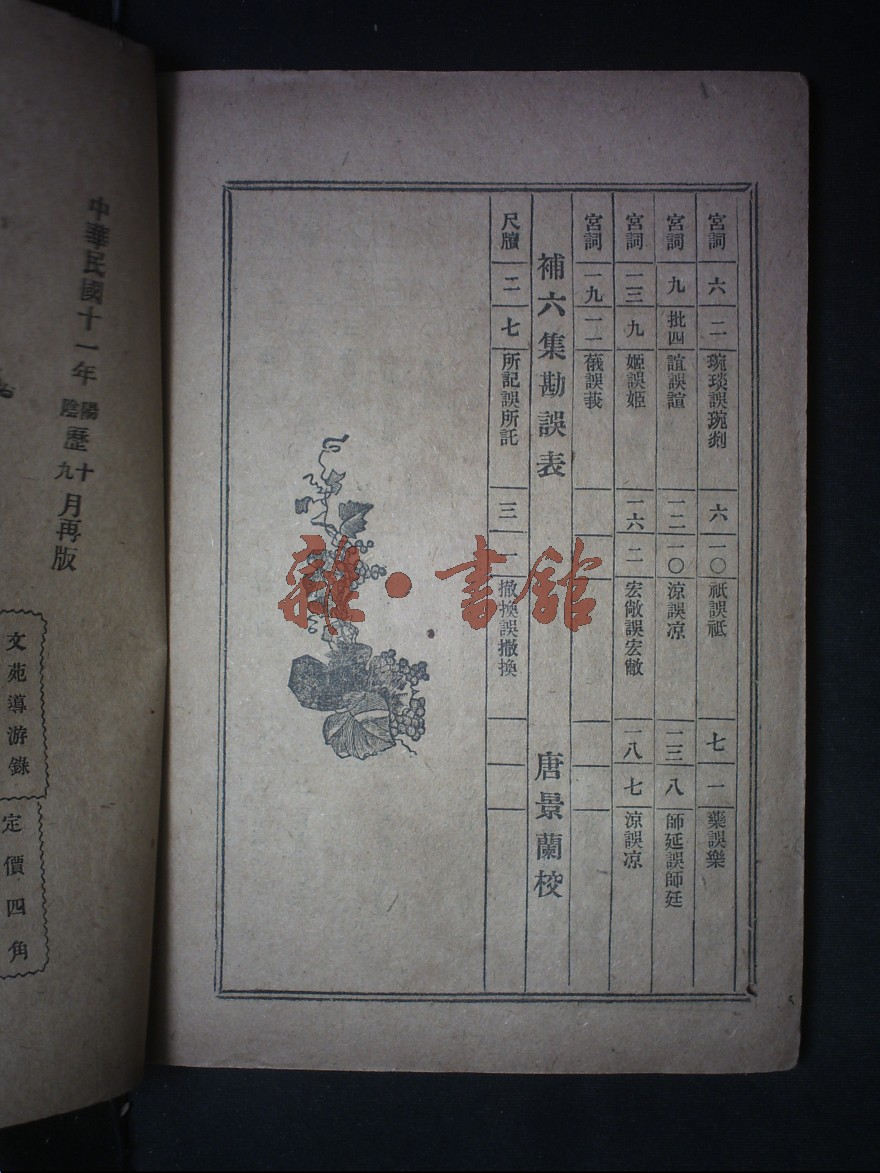 宮詞 六 二 琬琰誤琬剡 六 一〇 祇誤祗 七 一 藥誤樂
宮詞 九 批四 誼誤諠 一二 一〇 涼誤凉 一三 八 師延誤師廷
宮詞 一三 九 姬誤姫 一六 二 宏敞誤宏敝 一八 七 涼誤凉
宮詞 一九 一一
補六集勘誤表 唐景蘭校
尺牘 二 七 所記誤所託 三 一 撤換誤撒換
雜·書館
中華民國十一年 陽陰歷十九月再版
文苑導游錄
定價四角